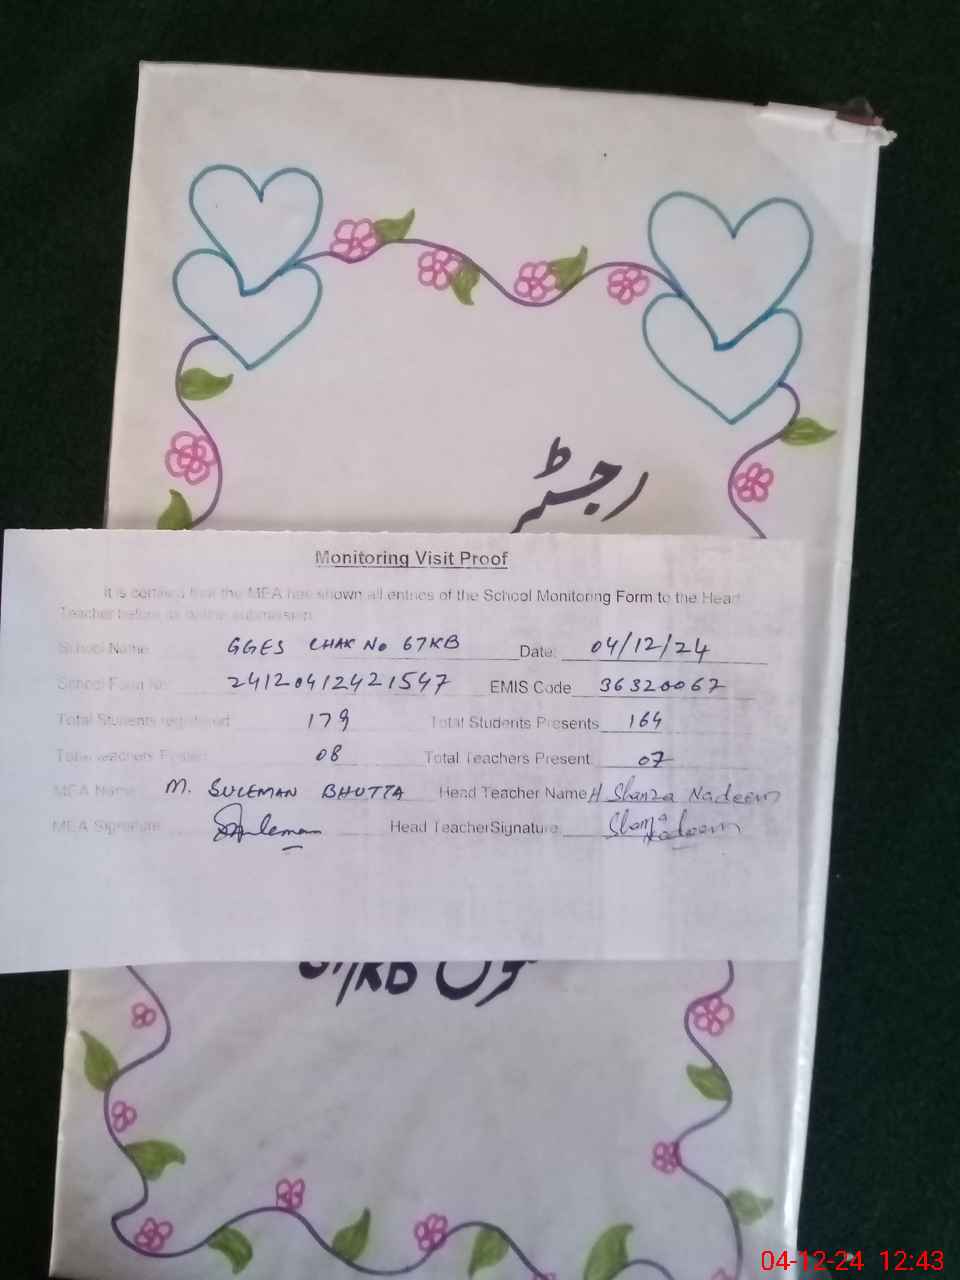 رجسٹر
Monitoring Visit Proof
It is certified that the MEA has shown all entries of the School Monitoring Form to the Head
Teacher before its online submission.
School Name GGES CHAK No 67KB Date: 04/12/24
School Form No 24120412421547 EMIS Code 36320067
Total Students registered 179 Total Students Presents 164
Total Teachers Posted 08 Total Teachers Present 07
MEA Name M. SULEMAN BHUTTA Head Teacher Name H Shanza Nadeem
MEA Signature Suleman Head TeacherSignature Shanza Nadeem
04-12-24 12:43